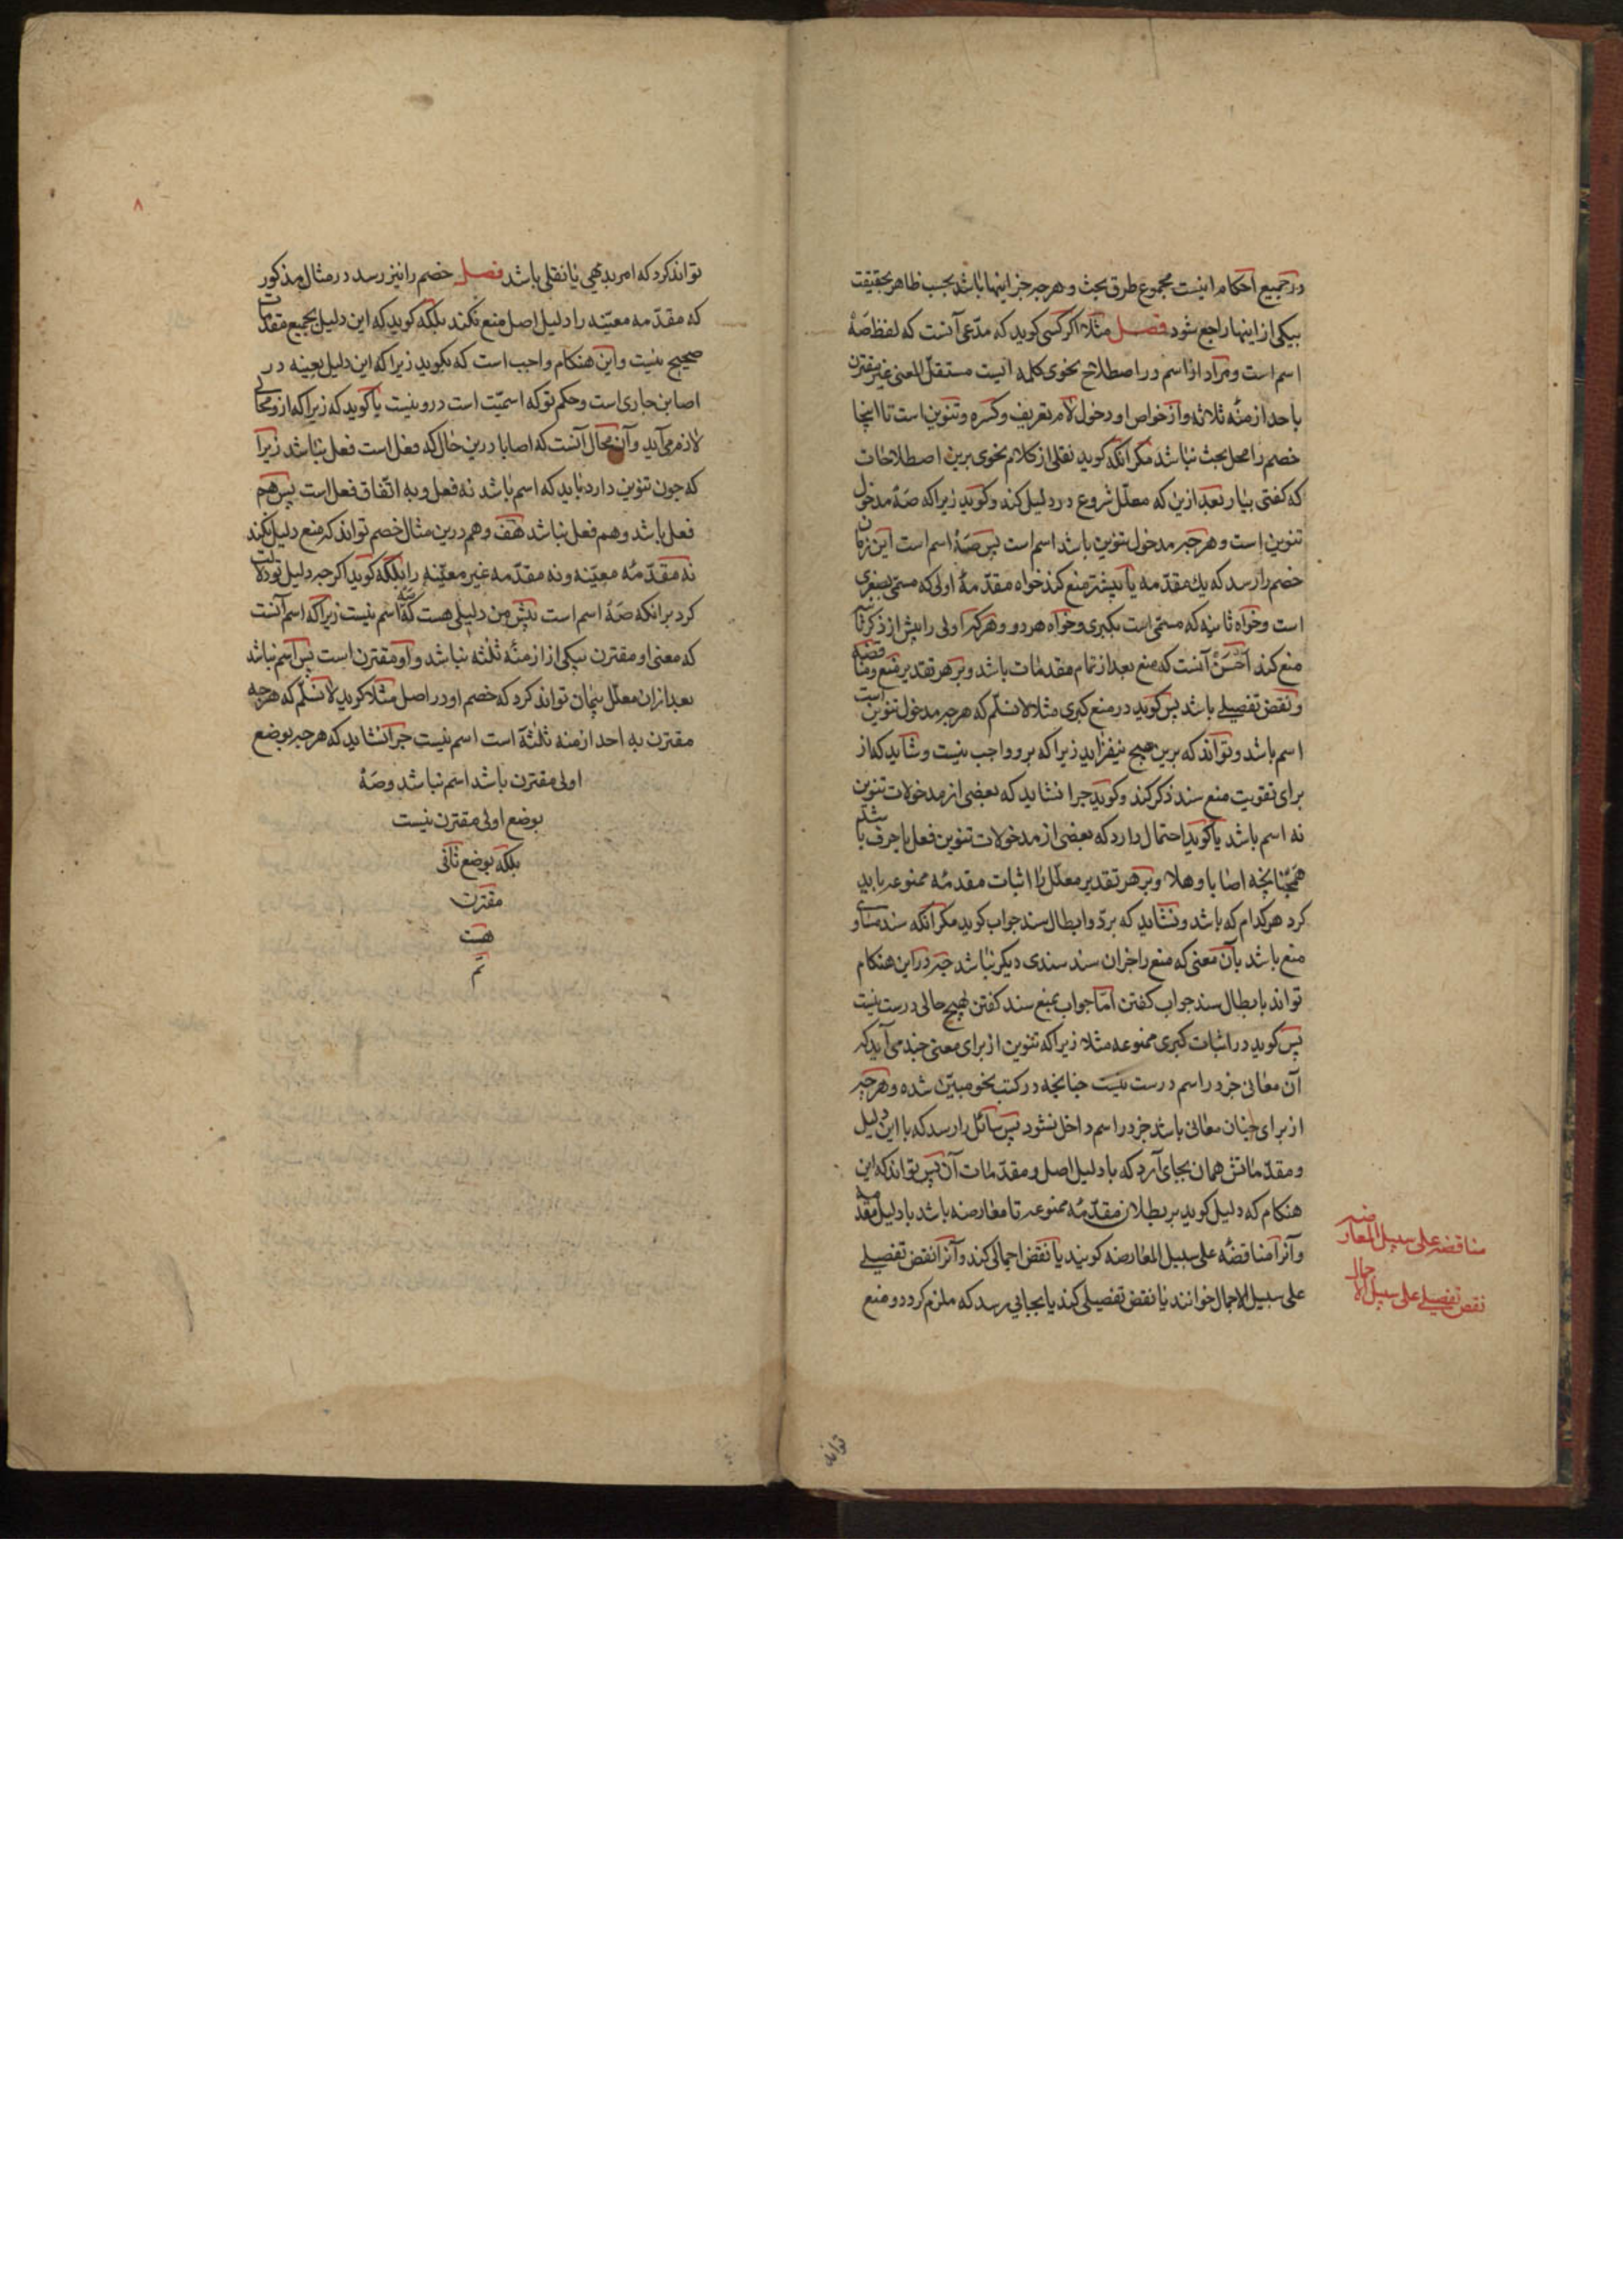 در جمیع احکام اینست مجموع طرق بحث و هر چه جز اینها باشد بحسب ظاهر بحقیقت
بیکی از اینها راجع شود فصل مثلا اکر کسی کوید که مدّعی آنست که لفظ صَهٍ
اسم است و مراد از اسم در اصطلاح نحوی کلمه ایست مستقل المعنی غیر مقترن
باحد ازمنهٔ ثلاثه و از خواص او دخول لام تعریف و کسره و تنوین است تا اینجا
خصم را محل بحث نباشد مکر آنکه کوید نقلی از کلام نحوی برین اصطلاحات
که کفتی بیار بعد ازین که معلّل شروع در دلیل کند و کوید زیرا که صهٍ مدخول
تنوین است و هر چه مدخول تنوین باشد اسم است پس صهٍ اسم است این زمان
خصم را رسد که یك مقدّمه یا بیشتر منع کند خواه مقدّمهٔ اولی که مسمّی بصغری
است و خواه ثانیه که مسمّی است بکبری و خواه هر دو و هر کرا اولی را پیش از ذکر ثانیه
منع کند اَحْسَنْ آنست که منع بعد از تمام مقدمات باشد و بر هر تقدیر منع و مناقضه
و نقض تفصیلی باشد پس کوید در منع کبری مثلا لا نسلّم که هر چه مدخول تنوین است
اسم باشد و تواند که برین هیچ نیفزاید زیرا که برو واجب نیست و شاید که از
برای تقویت منع سند ذکر کند و کوید چرا نشاید که بعضی از مدخولات تنوین
نه اسم باشد یا کوید احتمال دارد که بعضی از مدخولات تنوین فعل یا حرف باشد
همچنانچه اصابا و هلا و بر هر تقدیر معلّل را اثبات مقدمهٔ ممنوعه باید
کرد هر کدام که باشد و نشاید که بردّ و ابطال سند جواب کوید مکر آنکه سند مساوی
منع باشد بآن معنی که منع را جز آن سند سندی دیکر نباشد چه در این هنکام
تواند بابطال سند جواب کفتن امّا جواب بمنع سند کفتن بهیچ حالی درست نیست
پس کوید در اثبات کبری ممنوعه مثلا زیرا که تنوین از برای معنی چند می آید که
آن معانی جز در اسم درست نیست چنانچه در کتب نحو مبیّن شده و هر چه
از برای چنان معانی باشد جز در اسم داخل نشود پس سائل را رسد که با این دلیل
و مقدّماتش همان بجای آرد که با دلیل اصل و مقدّمات آن پس تواند که این
هنکام که دلیل کوید بر بطلان مقدّمهٔ ممنوعه تا معارضه باشد با دلیل مقدمه
و آنرا مناقضهٔ علی سبیل المعارضه کویند یا نقض اجمالی کند و آنرا نقض تفصیلی
علی سبیل الاجمال خوانند یا نقض تفصیلی کند یا بجایی رسد که ملزم کردد و منع
مناقضه علی سبیل المعارضه
نقض تفصیلی علی سبیل الاجمال
تواند
۸
تواند کرد که امر بدیهی یا نقلی باشد فصل خصم را نیز رسد در مثال مذکور
که مقدّمه معیّنه را دلیل اصل منع نکند بلکه کوید که این دلیل بجمیع مقدمات
صحیح نیست و این هنکام واجب است که بکوید زیرا که این دلیل بعینه در
اصابن جاری است و حکم تو که اسمیّت است درو نیست یا کوید که زیرا که ازو محالی
لازم می آید و آن محال آنست که اصابا درین حال که فعل است فعل نباشد زیرا
که چون تنوین دارد باید که اسم باشد نه فعل و به اتّفاق فعل است پس هم
فعل باشد و هم فعل نباشد هف و هم درین مثال خصم تواند که منع دلیل نکند
نه مقدّمهٔ معیّنه و نه مقدّمه غیر معیّنه را بلکه کوید اکر چه دلیل تو دلالت
کرد بر انکه صهٍ اسم است پیش من دلیلی هست که صهٍ اسم نیست زیرا که اسم آنست
که معنی او مقترن بیکی از ازمنهٔ ثلثه نباشد و او مقترن است پس اسم نباشد
بعد ازان معلّل همان تواند کرد که خصم او در اصل مثلا کوید لا نسلّم که هر چه
مقترن به احد ازمنه ثلثة است اسم نیست چرا نشاید که هر چه بوضع
اولی مقترن باشد اسم نباشد و صهٍ
بوضع اولی مقترن نیست
بلکه بوضع ثانی
مقترن
هست
تم